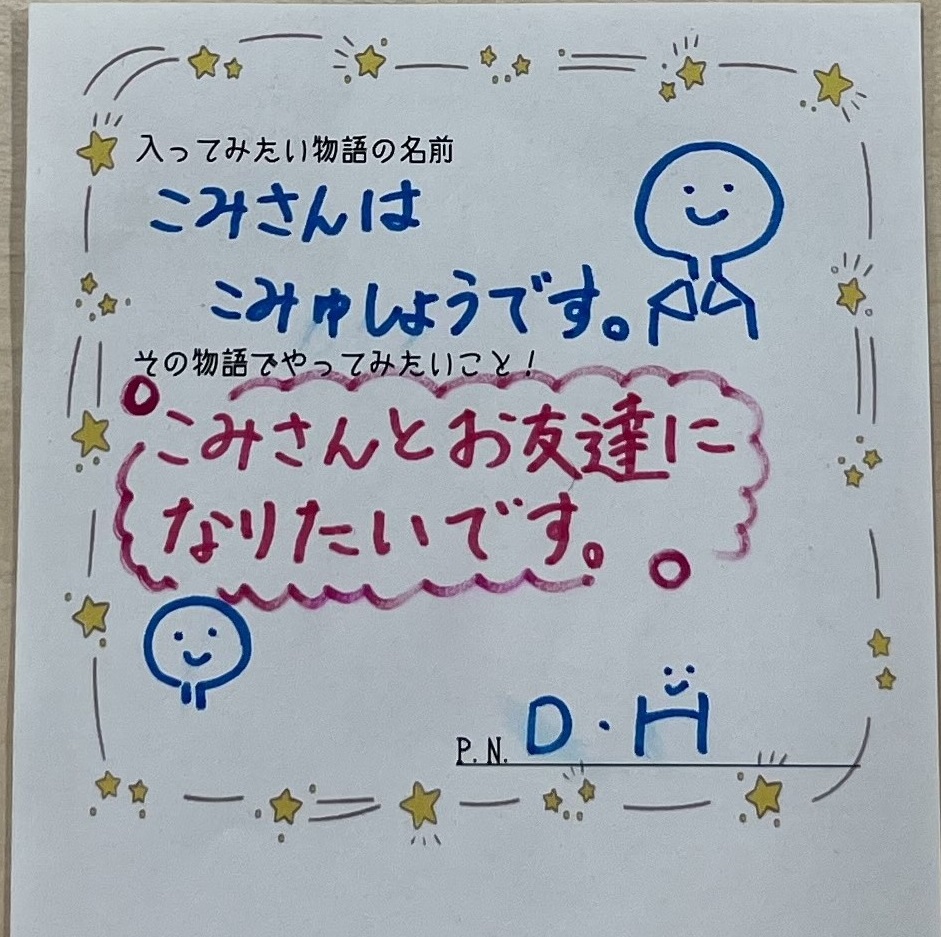 入ってみたい物語の名前
こみさんは
こみゅしょうです。
その物語でやってみたいこと！
こみさんとお友達に
なりたいです。
P.N. D・H